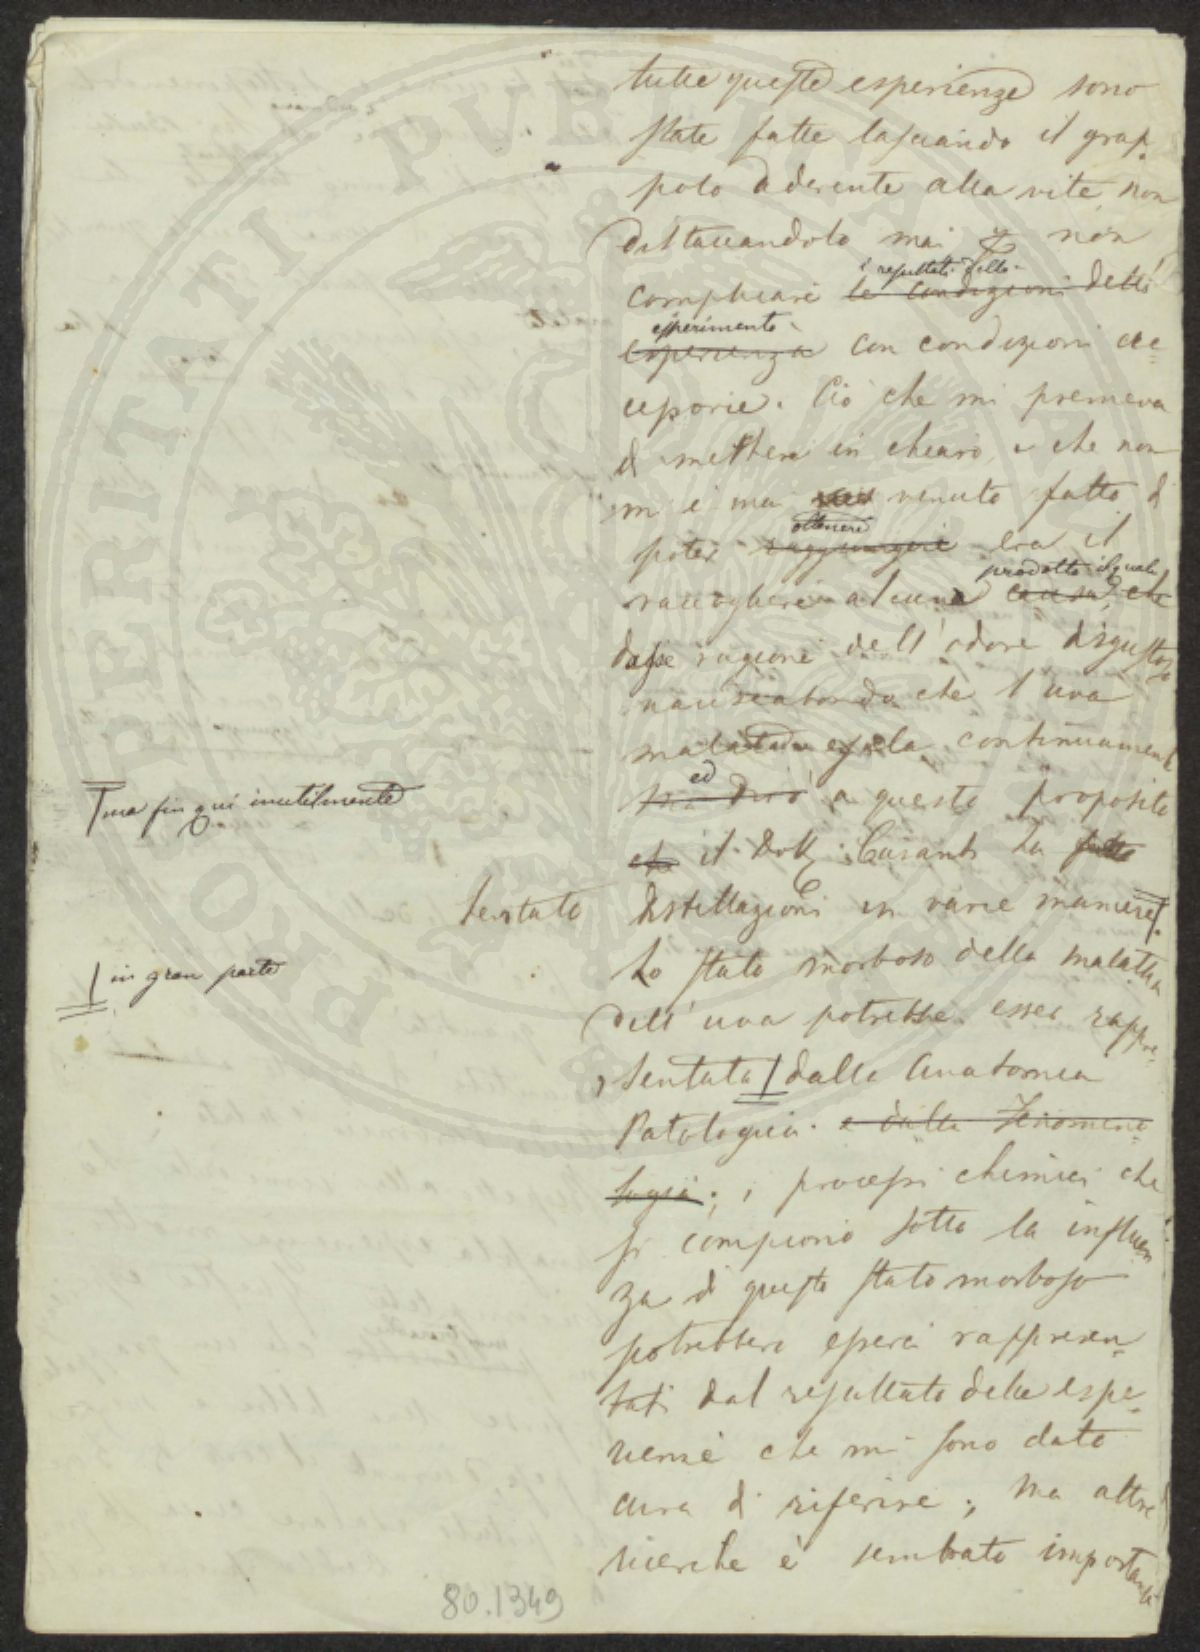 tutte queste esperienze sono
state fatte lasciando il grap-
polo aderente alla vite, non
distaccandolo mai p non
i resultati dello
complicare le condizioni dell'
esperimento
esperienza con condizioni ac-
cessorie. Ciò che mi premeva
di mettere in chiaro, e che non
m'è mai venuto fatto di
ottenere
poter raggiungere era il
prodotto il quale
raccogliere alcuna causa, che
dasse ragione dell'odore disgustoso
nauseabondo che l'uva
malata esala continuament
ed
ma dirò a questo proposito
che il Dott. Casanti ha fatto
tentato distillazioni in varie maniere
ma fin qui inutilmente
Lo stato morboso della malattia
dell'uva potrebbe esser rappre-
sentata dalla Anatomia
in gran parte
Patologica. e dalla Fenomeno-
logia; i processi chimici che
si compiono sotto la influen
za di questo stato morboso
potrebbero essere rappresen-
tati dal resultato delle espe-
rienze che mi sono dato
cura di riferire; ma altre
ricerche è sembrato important
80.1349
PERITATI PVBLICAE PRO